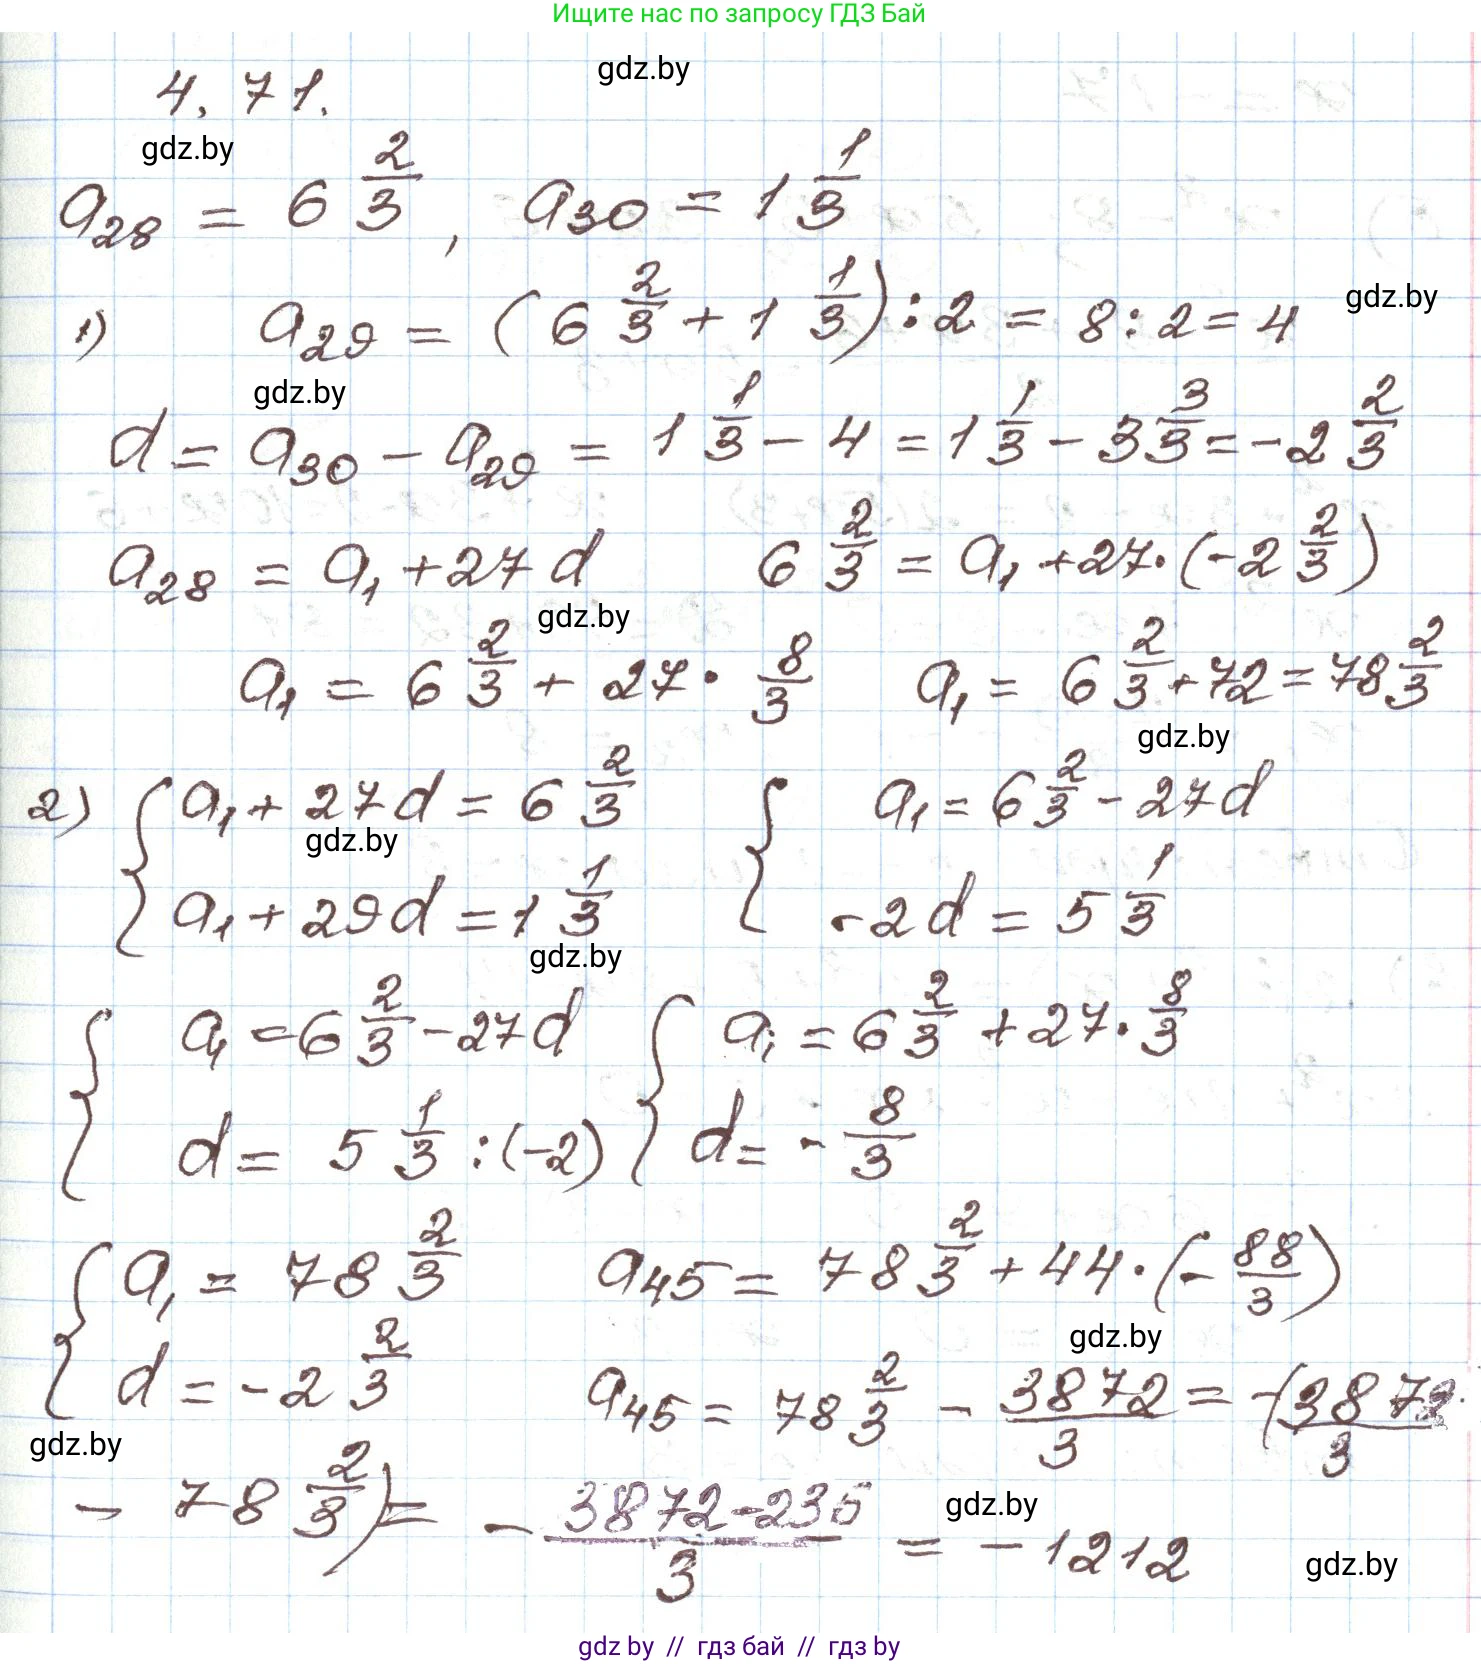 Ищите нас по запросу ГДЗ Бай
4.71.
gdz.by
gdz.by
a₂₈ = 6 2/3, a₃₀ = 1 1/3
1) a₂₉ = (6 2/3 + 1 1/3) : 2 = 8 : 2 = 4
gdz.by
gdz.by
d = a₃₀ - a₂₉ = 1 1/3 - 4 = 1 1/3 - 3 3/3 = -2 2/3
a₂₈ = a₁ + 27d 6 2/3 = a₁ + 27·(-2 2/3)
gdz.by
a₁ = 6 2/3 + 27 · 8/3 a₁ = 6 2/3 + 72 = 78 2/3
gdz.by
2) { a₁ + 27d = 6 2/3 { a₁ = 6 2/3 - 27d
gdz.by
a₁ + 29d = 1 1/3 -2d = 5 1/3
gdz.by
{ a₁ = 6 2/3 - 27d { a₁ = 6 2/3 + 27 · 8/3
d = 5 1/3 : (-2) d = - 8/3
{ a₁ = 78 2/3 a₄₅ = 78 2/3 + 44·(- 88/3)
gdz.by
d = -2 2/3 a₄₅ = 78 2/3 - 3872/3 = -(3872/3
gdz.by
- 78 2/3) = - 3872-236/3 = -1212
gdz.by
gdz.by
gdz by // гдз бай // гдз by